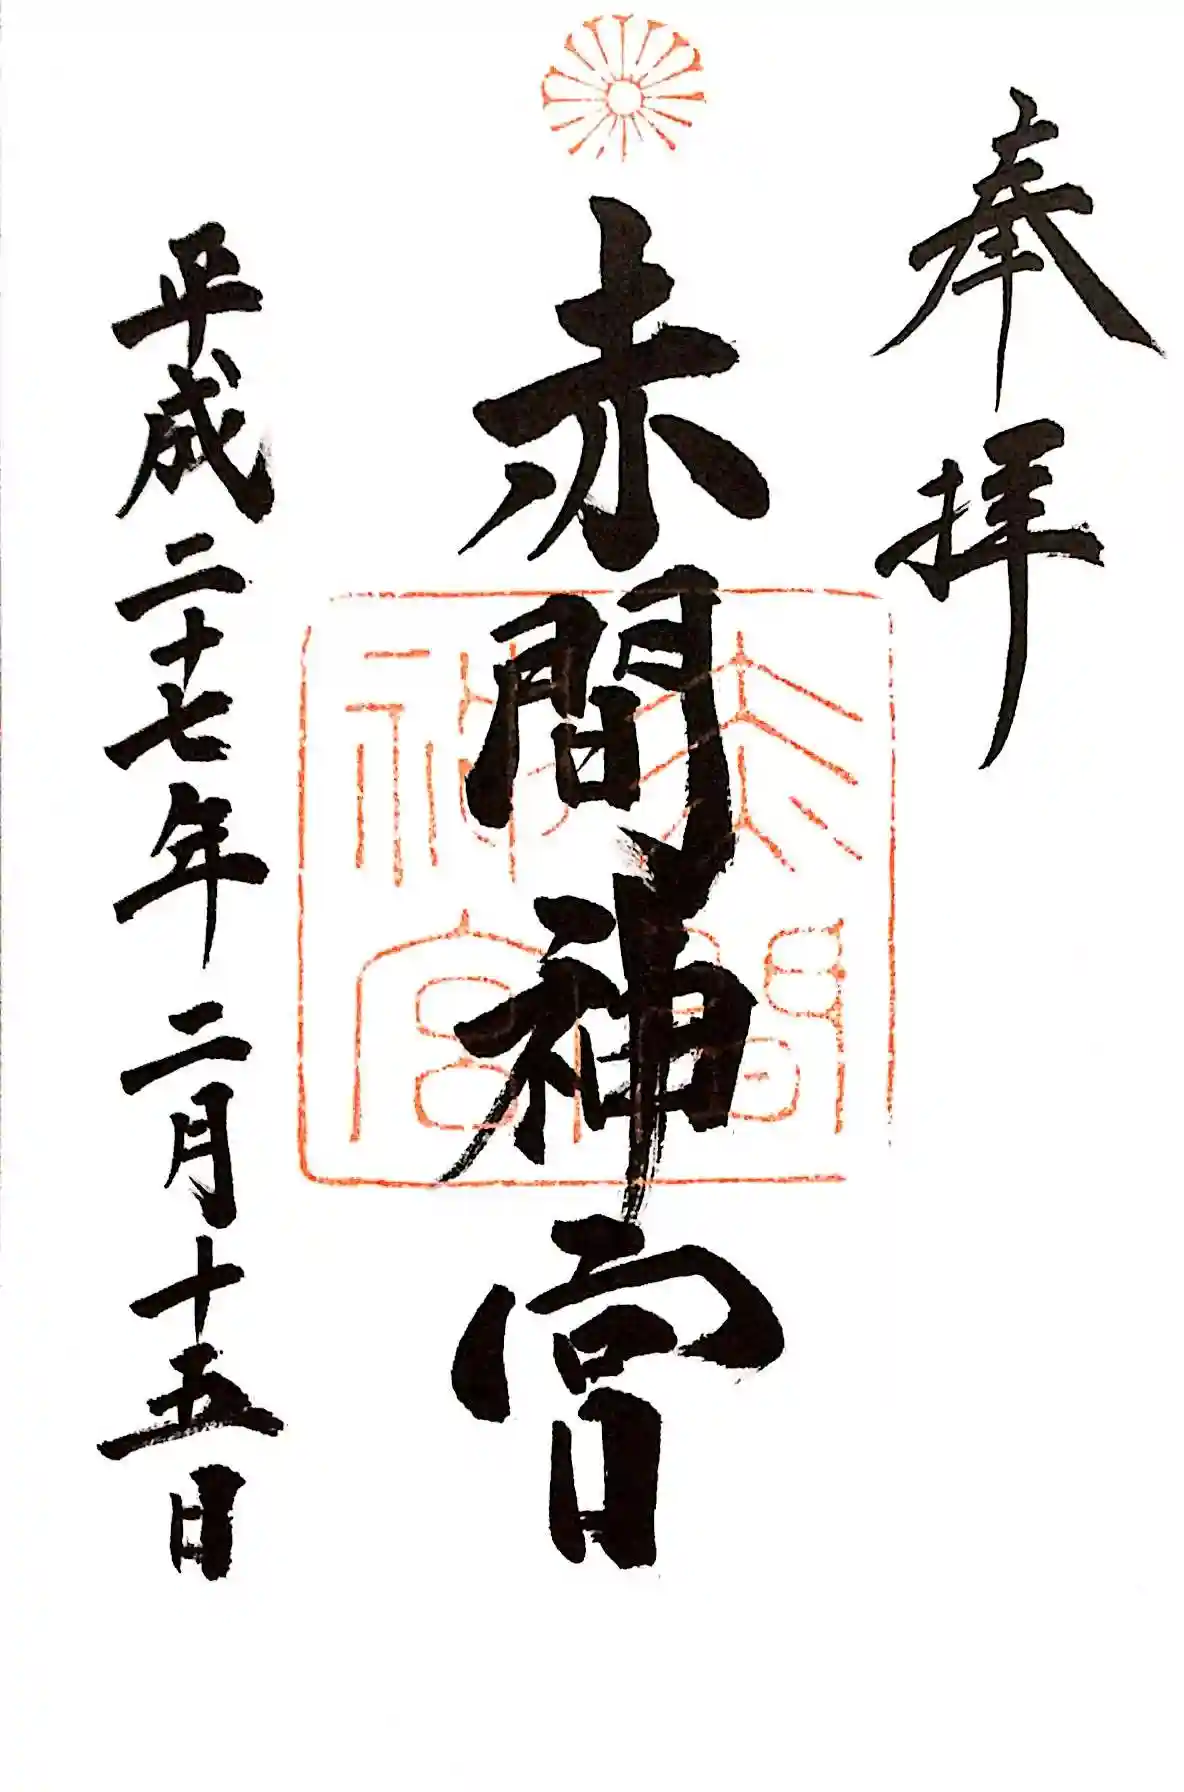 奉拝
赤間神宮
赤間神宮
平成二十七年二月十五日